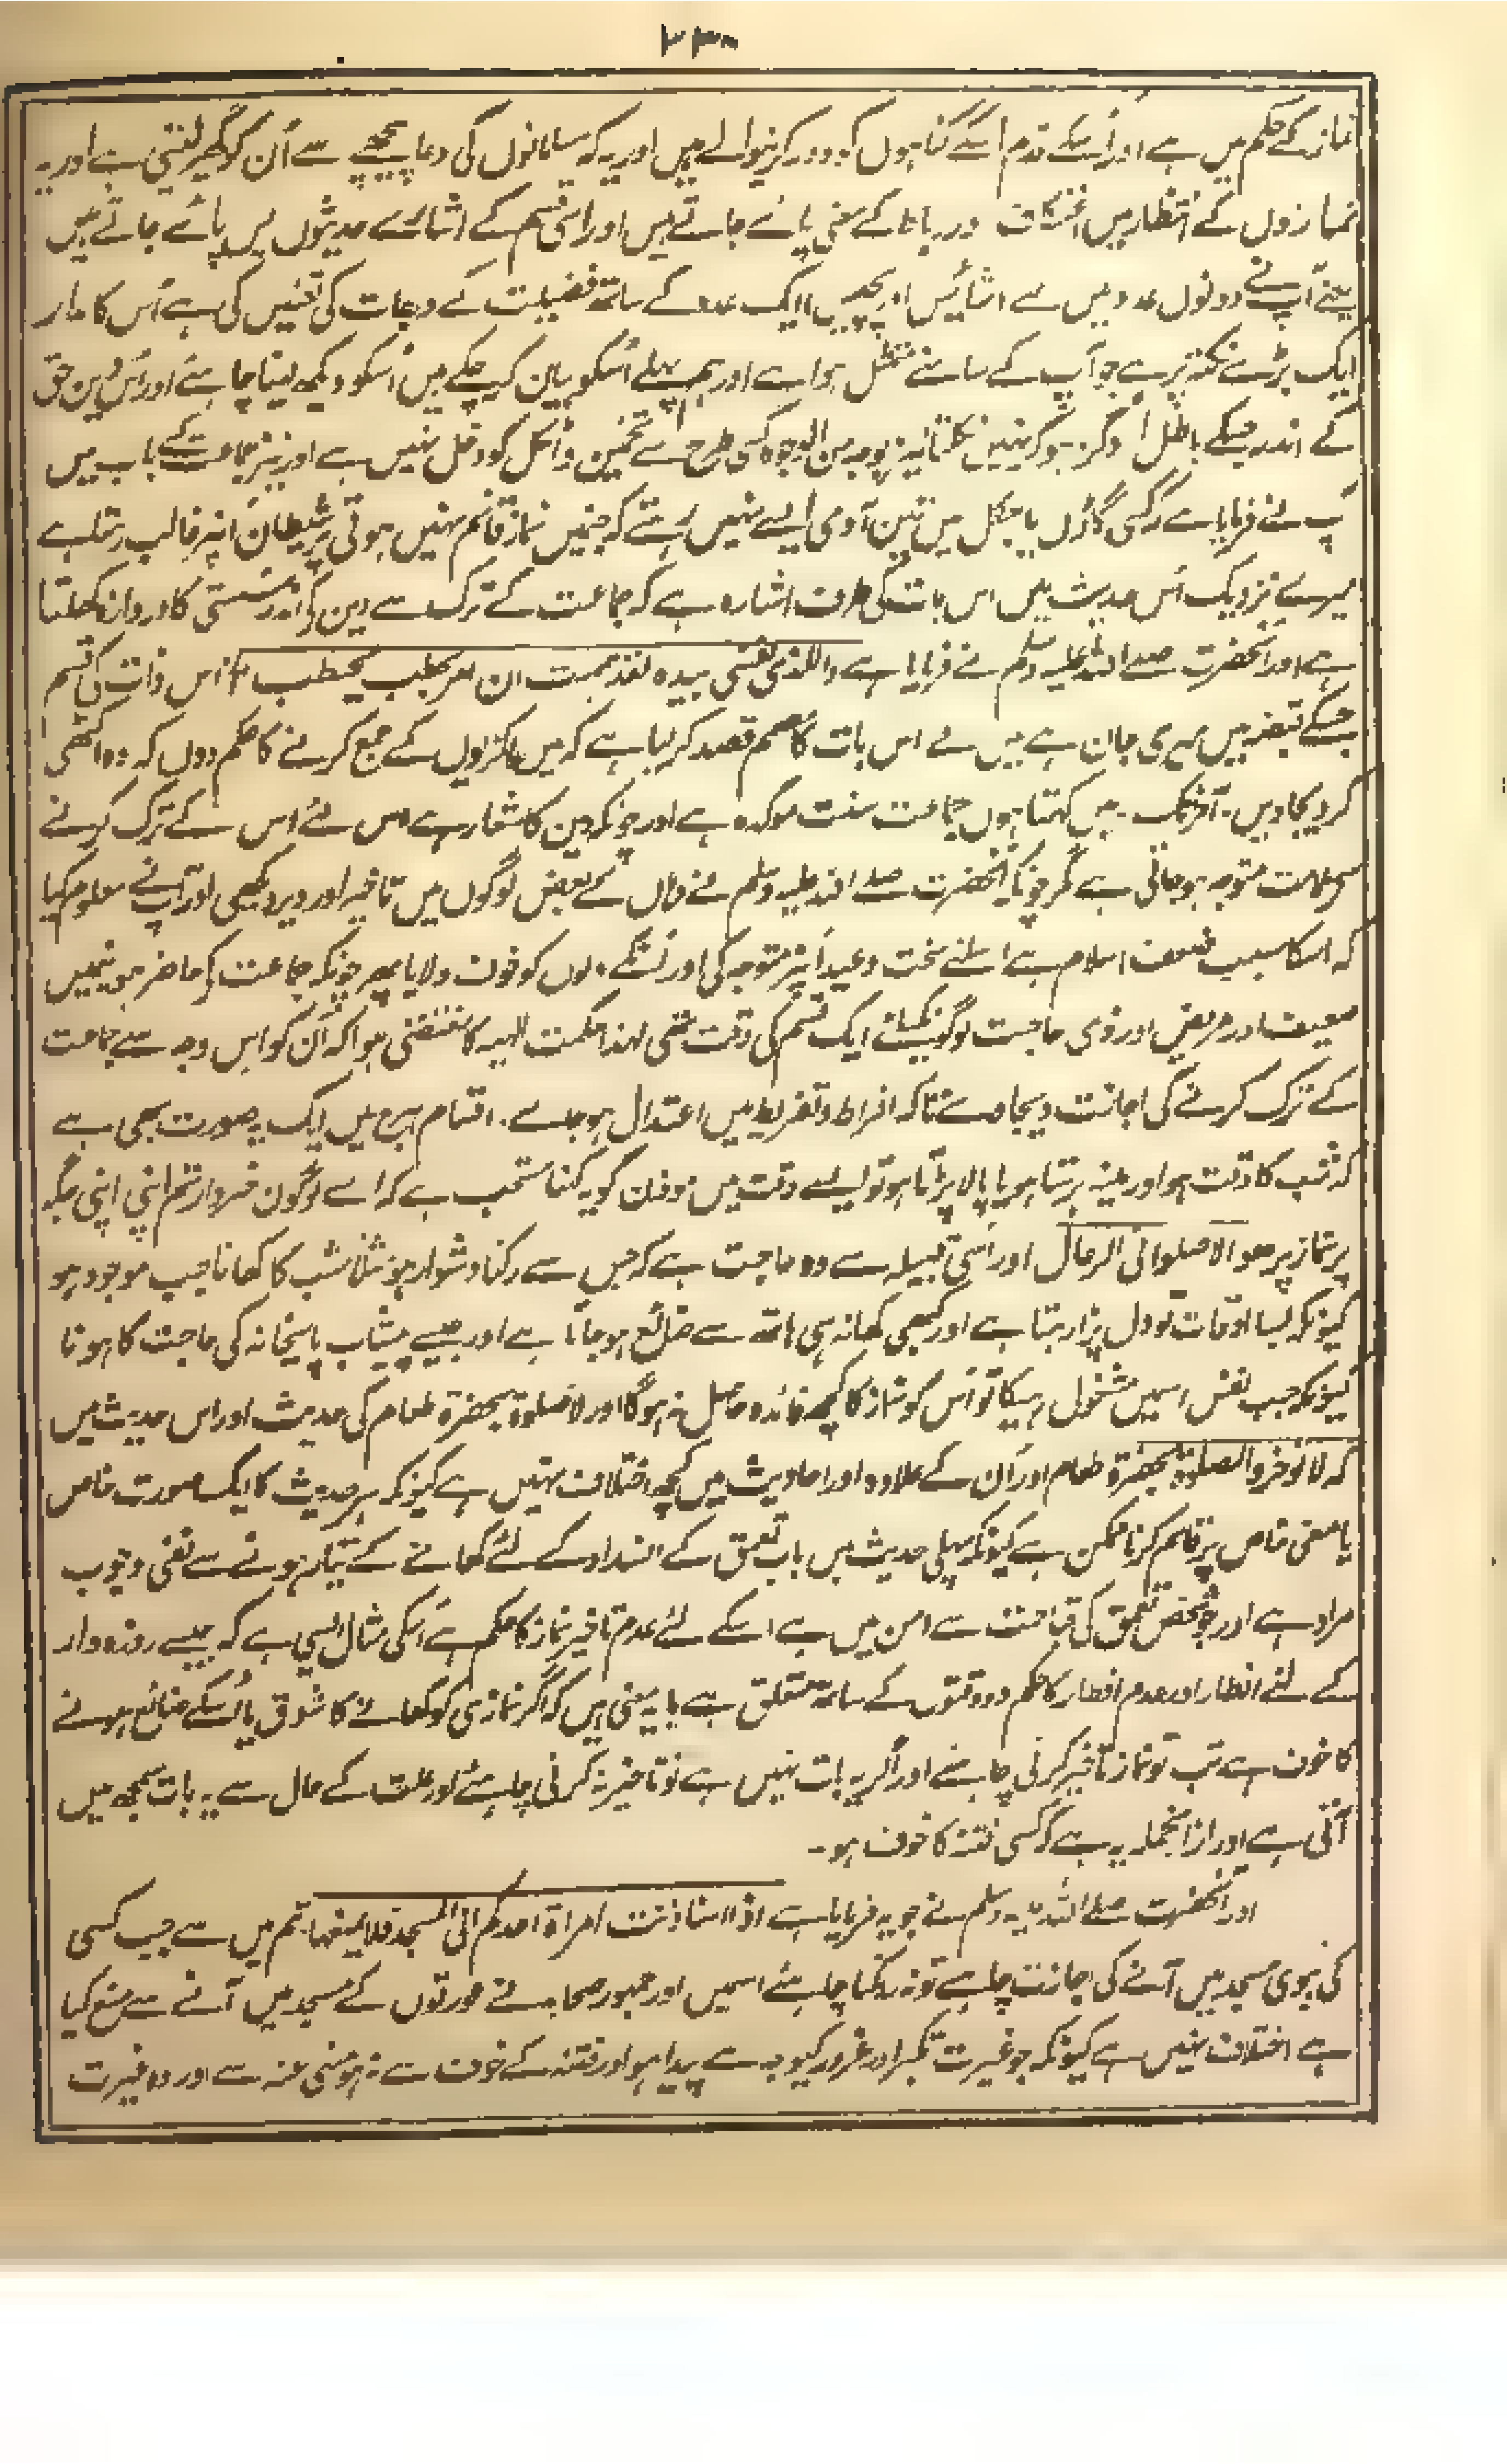 ۲۳۰
نماز کے حکم میں ہے اور اُسکے قدم اسکے گناہوں کو دور کرنیوالے ہیں اور یہ کہ مسلمانوں کی دعا پیچھے سے اُن کو گھیر لیتی ہے اور یہ
نمازوں کے انتظار میں اعتکاف ور رباط کے معنی پائے جاتے ہیں اور اسی قسم کے اشارے حدیثوں میں پائے جاتے ہیں
یعنے آپ نے دونوں عددمیں سے ستائیس اور پچیس ایک عدد کے ساتھ فضیلت کے درجات کی تعیین کی ہے اُس کا مدار
ایک بڑے نکتہ پر ہے جو آپ کے سامنے متمثل ہوا ہے اور ہم پہلے اُسکو بیان کر چکے ہیں اُسکو دیکھ لینا چاہئے اور اُس دین حق
کے اندر جسکے باطل ہو کر نہیں نکلتا بوجہ من الوجوہ کسی طرح سے تخمین و اٹکل کو دخل نہیں ہے اور نیز جماعت کے باب میں
آپ نے فرمایا ہے کہ کسی گاؤں یا جنگل میں تین آدمی ایسے نہیں رہتے کہ جنمیں نماز قائم نہیں ہوتی پر شیطان اُنپر غالب رہتا ہے
میرے نزدیک اُس حدیث میں اس بات کی طرف اشارہ ہے کہ جماعت کے ترک سے دین کے اندر سستی کا دروازہ کھلتا
ہے اور آنحضرت صلے اللہ علیہ وسلم نے فرمایا ہے والذی نفسی بیدہ لقد ہممت ان امر بحطب یحطب الخ اس ذات کی قسم
جسکے قبضہ میں میری جان ہے میں نے اس بات کا مصمم قصد کر لیا ہے کہ میں لکڑیوں کے جمع کرنے کا حکم دوں کہ وہ اکٹھی
کردیجاویں۔ آخرتک۔ میں کہتا ہوں جماعت سنت موکدہ ہے اور چونکہ دین کا شعار ہے اس لئے اس کے ترک کرنے
سے ملامت متوجہ ہو جاتی ہے مگر چونکہ آنحضرت صلے اللہ علیہ وسلم نے وہاں کے بعض لوگوں میں تاخیر اور دیر دیکھی اور آپ نے معلوم کیا
کہ اسکا سبب ضعف اسلام ہے اسلئے سخت وعید اُنپر متوجہ کی اور اُنکے دلوں کو خوف دلایا پھر چونکہ جماعت کے حاضر ہونیمیں
ضعیف اور مریض اور ذی حاجت لوگونکیلئے ایک قسم کی دقت تھی لہذا حکمت الہیہ کا مقتضی ہوا کہ اُن کو اس وجہ سے جماعت
کے ترک کرنے کی اجازت دیجاوے تاکہ افراط و تفریط میں اعتدال ہو جاے۔ اقسام حرج میں ایک یہ صورت بھی ہے
کہ شب کا وقت ہو اور مینہ برستا ہو یا پالا پڑتا ہو تو ایسے وقت میں موذن کو یہ کہنا مستحب ہے کہ اے لوگون خبردار تم اپنی اپنی جگہ
پر نماز پڑھو الا صلوا فی الرحال اور اُسی قبیلہ سے وہ حاجت ہے کہ جس سے رکنا دشوار ہو مثلا شب کا کھانا جب موجود ہو
کیونکہ بسا اوقات تو دل پڑا رہتا ہے اور کبھی کھانہ ہی ہاتھ سے ضائع ہو جاتا ہے اور جیسے پیشاب پائیخانہ کی حاجت کا ہونا
کیونکہ جب نفس اسمیں مشغول رہیگا تو اُس کو نماز کا کچھ فائدہ حاصل نہ ہوگا اور لا صلوۃ بحضرۃ طعام کی حدیث اور اس حدیث میں
کہ لا تؤخروا الصلوۃ بحضرۃ طعام اور اُن کے علاوہ اور احادیث میں کچھ اختلاف نہیں ہے کیونکہ ہر حدیث کا ایک صورت خاص
یا معنی خاص پر قائم کرنا ممکن ہے کیونکہ پہلی حدیث میں باب تعمق کے انسداد کے لئے کھانے کے تیار ہونے سے نفی وجوب
مراد ہے اور جو شخص تعمق کی قباحت سے امن میں ہے اسکے لئے عدم تاخیر نماز کا حکم ہے اُسکی مثال ایسی ہے کہ جیسے روزہ دار
کے لئے افطار اور عدم افطار کا حکم دو وقتوں کے ساتھ متعلق ہے یا یہ معنی ہیں کہ اگر نمازی کو کھانے کا شوق یا اُسکے ضائع ہونے
کا خوف ہے تب تو نماز تاخیر کرنی چاہئے اور اگر یہ بات نہیں ہے تو تاخیر نہ کرنی چاہئے اور علت کے حال سے یہ بات سمجھ میں
آتی ہے اور ازانجملہ یہ ہے کہ کسی فتنہ کا خوف ہو۔
اور آنحضرت صلے اللہ علیہ وسلم نے جو یہ فرمایا ہے اذا استاذنت امراۃ احدکم الی المسجد فلا یمنعہا۔ تم میں سے جب کسی
کی بیوی مسجد میں آنے کی اجازت چاہے تو نہ روکنا چاہئے اسمیں اور جمہور صحابہ نے عورتوں کے مسجد میں آنے سے منع کیا
ہے اختلاف نہیں ہے کیونکہ جو غیرت تکبر اور غرور کیوجہ سے پیدا ہو اور فتنہ کے خوف سے نہ ہو منہی عنہ ہے اور وہ غیرت